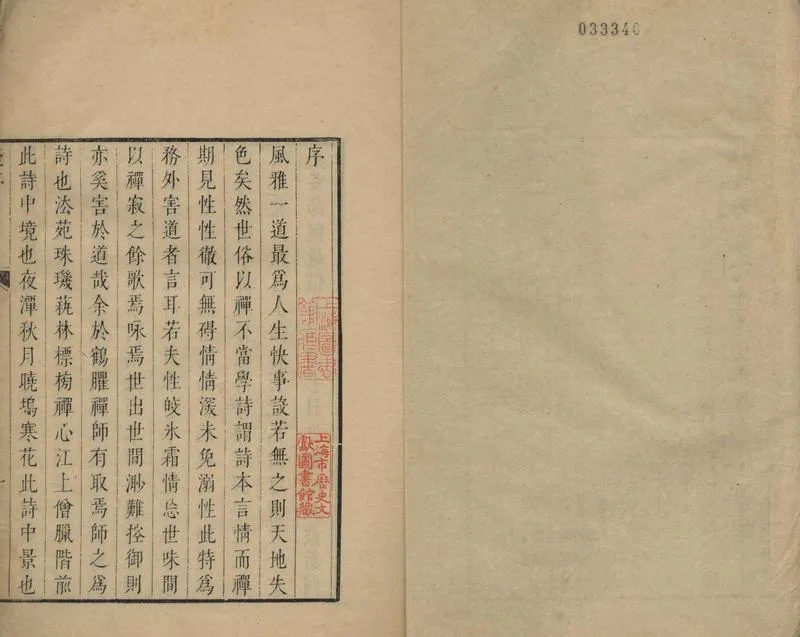 033340
序
風雅一道最爲人生快事設若無之則天地失
色矣然世俗以禪不當學詩謂詩本言情而禪
期見性性徹可無碍情情深未免溺性此特爲
務外害道者言耳若夫性皎氷霜情忘世味間
以禪寂之餘歌焉咏焉世出世間渺難控御則
亦奚害於道哉余於鶴臞禪師有取焉師之爲
詩也法苑珠璣蓺林標榜禪心江上僧臘階前
此詩中境也夜潭秋月曉塢寒花此詩中景也
上海市歷史文
獻圖書館藏